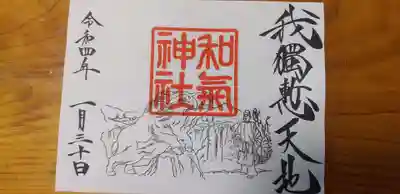 我獨慙天地
和氣
神社
令和四年
一月三十日